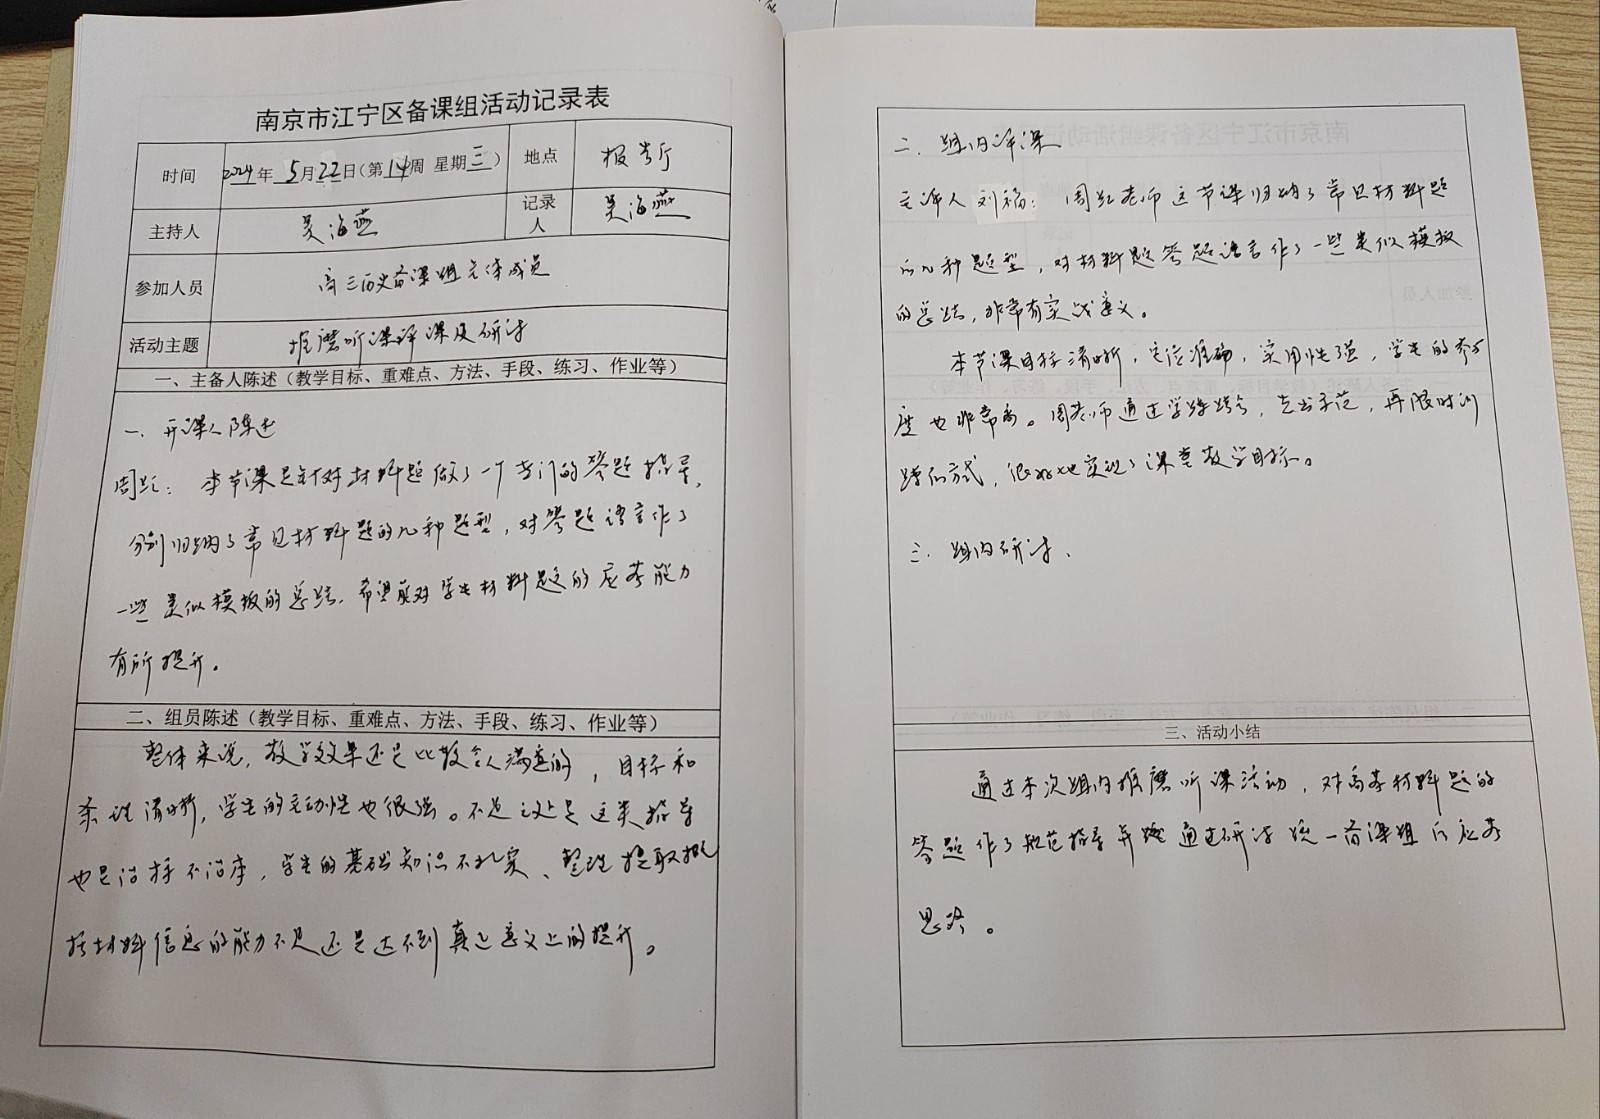 南京市江宁区备课组活动记录表
时间 2024年 5月22日(第14周 星期三) 地点 报告厅
主持人 吴海燕 记录人 吴海燕
参加人员 高三历史备课组全体成员
活动主题 推磨听课评课及研讨
一、主备人陈述(教学目标、重难点、方法、手段、练习、作业等)
一、开课人陈述
周: 本节课是针对材料题做了一个专门的答题指导,
分别归纳了常见材料题的几种题型,对答题语言作了
一些类似模板的总结,希望能对学生材料题的应答能力
有所提升。
二、组员陈述(教学目标、重难点、方法、手段、练习、作业等)
整体来说,教学效果还是比较令人满意的,目标和
条理清晰,学生的主动性也很强。不足之处是这类指导
也是治标不治本,学生的基础知识不扎实、整理提取概
括材料信息的能力不足还是达不到真正意义上的提升。
二、组内评课
主评人刘福: 周老师这节课归纳了常见材料题
的几种题型,对材料题答题语言作了一些类似模板
的总结,非常有实战意义。
本节课目标清晰,定位准确,实用性强,学生的参与
度也非常高。周老师通过学路结合,先出示范,再限时训
练的方式,很好地实现了课堂教学目标。
三、组内研讨、
三、活动小结
通过本次组内推磨听课活动,对高考材料题的
答题作了规范指导并通过研讨统一备课组的应考
思路。